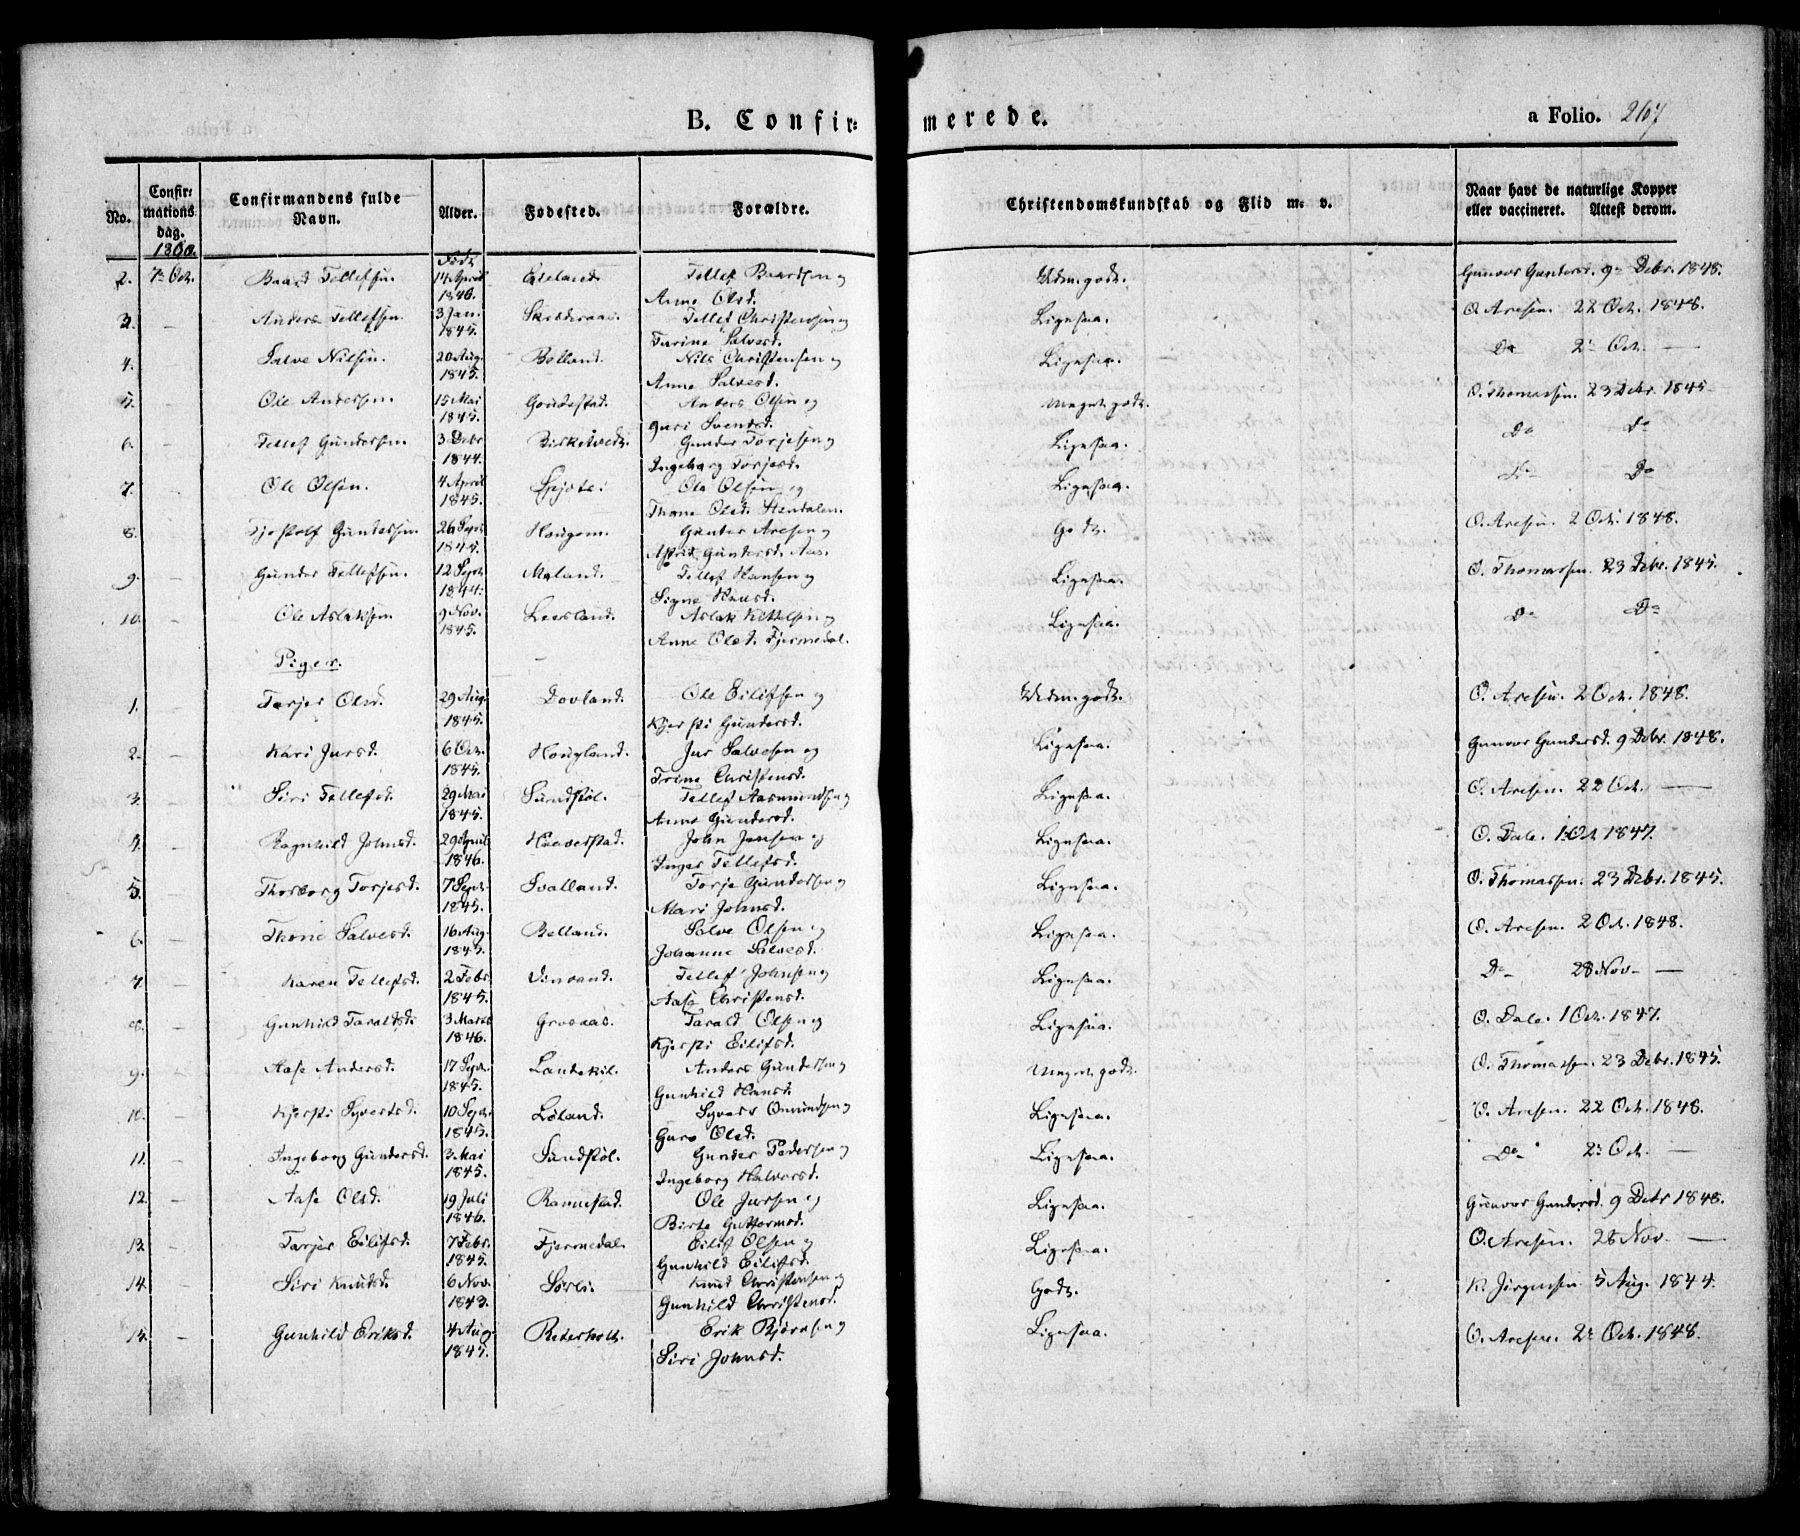 B. Confir=merede. a Folio. 267
No. Confir=mations dag. Confirmandens fulde Navn. Alder. Fødested. Forældre. Christendomskundskab og Flid m. v. Naar havt de naturlige Kopper eller vaccineret. Attest derom.
1860. Født
2. 7de Oct. Baard Tellefsen. 14 April 1846. Eieland. Tellef Baardsen og Anne Olsd. Udm. godt. Gunvor Gundersd. 9de Debr. 1848.
3. — Anders Tellefsen 3 Jan. 1845. Skredderaas. Tellef Christensen og Tarine Salvesd. Ligesaa. O. Aresen. 22 Oct. 1848.
4. — Salve Nilsen. 20 Aug. 1845. Bolland. Nils Christensen og Anne Salvesd. Ligesaa. Do 2 Oct. —
5. — Ole Andersen 15 Mai 1845. Goudestad. Anders Olsen og Guri Svendsd. Meget godt. O. Thomassen. 23 Debr. 1845
6. — Tellef Gundersen. 3 Debr 1844. Birketvedt. Gunder Torjesen og Ingeborg Torjesd. Ligesaa. Do Do
7. — Ole Olsen. 4 April 1845. Ole Olsen og Thone Olsd. Stendalen. Ligesaa. Do Do
8. — Gundersen 26 Sept. 1845. Hougom. Gunder Aresen og Astrid Gundersd. Aas. Godt. O. Aresen. 2 Oct. 1848.
9. — Gunder Tellefsen. 12 Sept. 1844. Moland. Tellef Hansen og Signe Knusd. Ligesaa. O. Thomassen. 23 Debr. 1845.
10. — Ole Aslaksen. 9 Nov. 1845. Leesland. Aslak Kittelsen og Anne Olsd. Fjermedal. Ligesaa. Do Do
Piger.
1. — Tarjer Olsd. 29 Aug. 1845. Dovland. Ole Eilifsen og Kjersti Gundersd. Udm. godt. O. Aresen. 2 Oct. 1848.
2. — Kari Jursd. 6 Oct. 1845. Hougland. Jur Salvesen og Trine Christensd. Ligesaa. Gunvor Gundersd. 9 Debr. 1848.
3. — Siri Tellefsd. 29 Mai 1845. Sundstøl. Tellef Aasmundsen og Anne Gundersd. Ligesaa. O. Aresen. 22 Oct. —
4. — Ragnhild Johnsd. 29 April 1846. Haaverstad. John Jensen og Inger Tellefsd. Ligesaa. O. Dale. 1 Oct 1847.
5. — Thorborg Torjesd. 7 Sept. 1845. Svalland. Torje Gundersen og Mari Johnsd. Ligesaa. O. Thomassen. 23 Debr. 1845.
6. — Thone Salvesd. 16 Aug. 1845. Belland. Salve Olsen og Johanne Salvesd. Ligesaa. O. Aresen. 2 Oct. 1848.
7. — Karen Tellefsd. 2 Febr. 1845. Tellef Johnsen og Aase Christensd. Ligesaa. Do 28 Nov. —
8. — Gunhild Taraldsd. 3 Marts 1846. Grosaas. Tarald Olsen og Kjersti Eilifsd. Ligesaa. O. Dale. 1 Oct. 1847.
9. — Aase Andersd. 17 Sept. 1845. Landekil. Anders Gundersen og Gunhild Hansd. Meget godt. O. Thomassen. 23 Debr. 1845.
10. — Kjersti Syvertsd. 10 Sept. 1845. Løland. Syvert Omundsen og Guro Olsd. Ligesaa. O. Aresen. 22 Oct. 1848.
11. — Ingeborg Gundersd. 3 Mai 1845. Sundstøl. Gunder Pedersen og Ingeborg Halvorsd. Ligesaa. Do 2 Oct. —
12. — Aase Olsd. 19 Juli 1846. Rannestad. Ole Jursen og Birte Guttormsd. Ligesaa. Gunvor Gundersd. 9 Debr 1848.
13. — Tarjer Eilifsd. 7 Febr. 1845. Fjermedal. Eilif Olsen og Gunhild Eilifsd. Ligesaa. O. Aresen. 28 Nov. —
14. — Siri Knudsd. 6 Nov. 1843. Sørli. Knud Christensen og Gunhild Christensd. Godt. K. Jørgensen 5 Aug. 1844.
14. — Gunhild Eriksd. 4 Aug. 1845. Reierholt. Erik Bjørnsen og Siri Johnsd. Ligesaa. O. Aresen. 2 Oct. 1848.